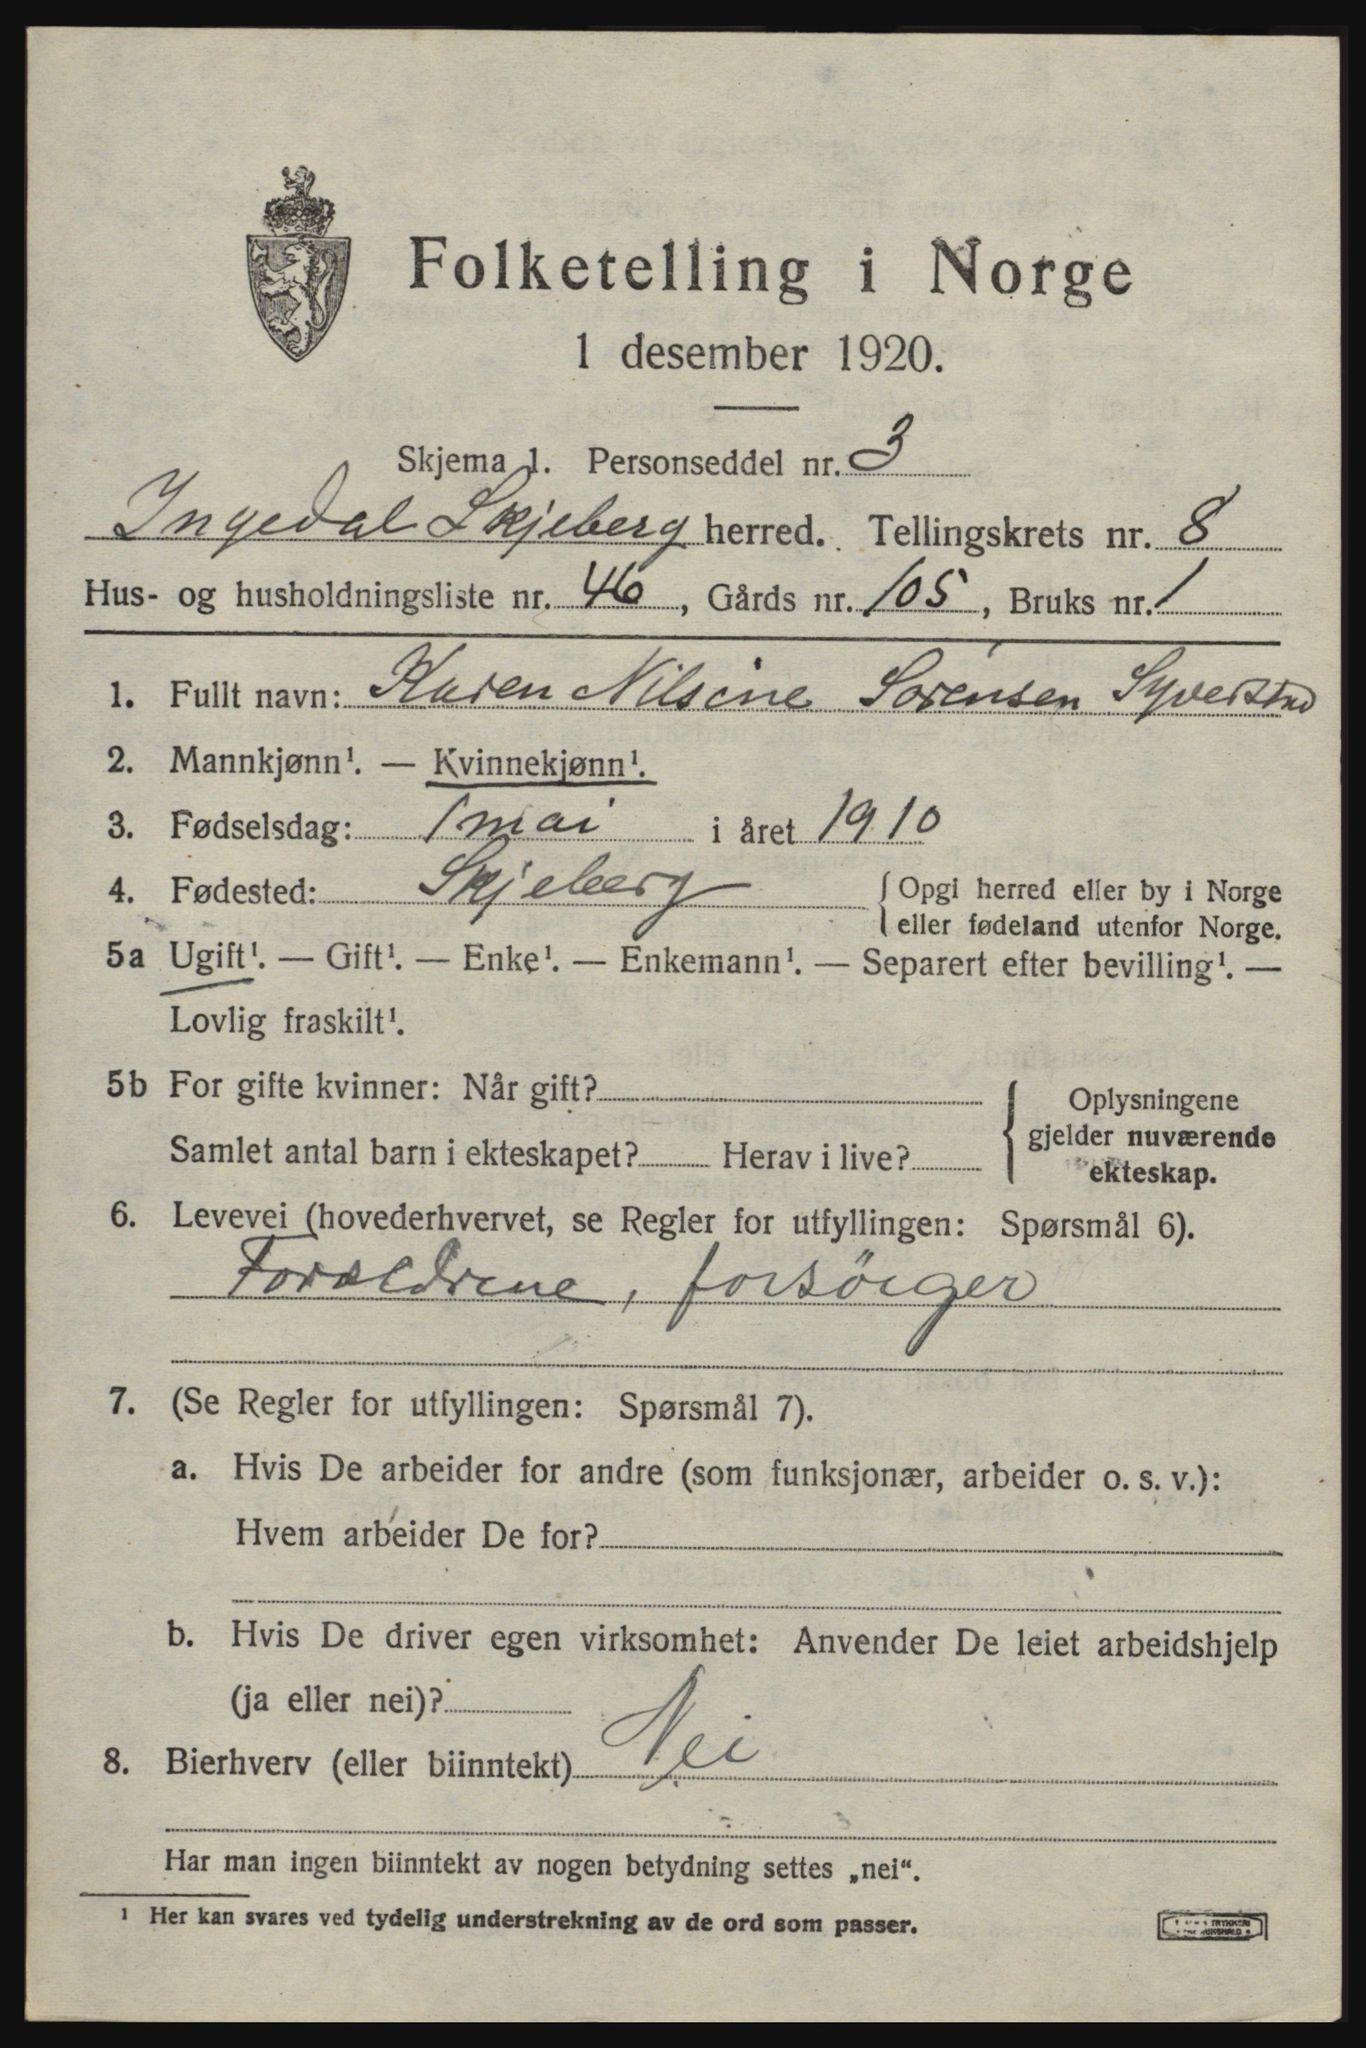 Folketelling i Norge
1 desember 1920.
Skjema 1. Personseddel nr. 3
Ingedal Skjeberg herred. Tellingskrets nr. 8
Hus- og husholdningsliste nr. 46, Gårds nr. 105, Bruks nr. 1
1. Fullt navn: Karen Nilsine Sørensen Syverstad
2. Mannkjønn¹. — Kvinnekjønn¹.
3. Fødselsdag: 1 mai i året 1910
4. Fødested: Skjeberg { Opgi herred eller by i Norge
eller fødeland utenfor Norge.
5a Ugift¹. — Gift¹. — Enke¹. — Enkemann¹. — Separert efter bevilling¹. —
Lovlig fraskilt¹.
5b For gifte kvinner: Når gift?
Samlet antal barn i ekteskapet? Herav i live?
Oplysningene
gjelder nuværende
ekteskap.
6. Levevei (hovederhvervet, se Regler for utfyllingen: Spørsmål 6).
Foraldrene, forsörger
7. (Se Regler for utfyllingen: Spørsmål 7).
a. Hvis De arbeider for andre (som funksjonær, arbeider o. s. v.):
Hvem arbeider De for?
b. Hvis De driver egen virksomhet: Anvender De leiet arbeidshjelp
(ja eller nei)?
8. Bierhverv (eller biinntekt) Nei
Har man ingen biinntekt av nogen betydning settes „nei“.
¹ Her kan svares ved tydelig understrekning av de ord som passer.